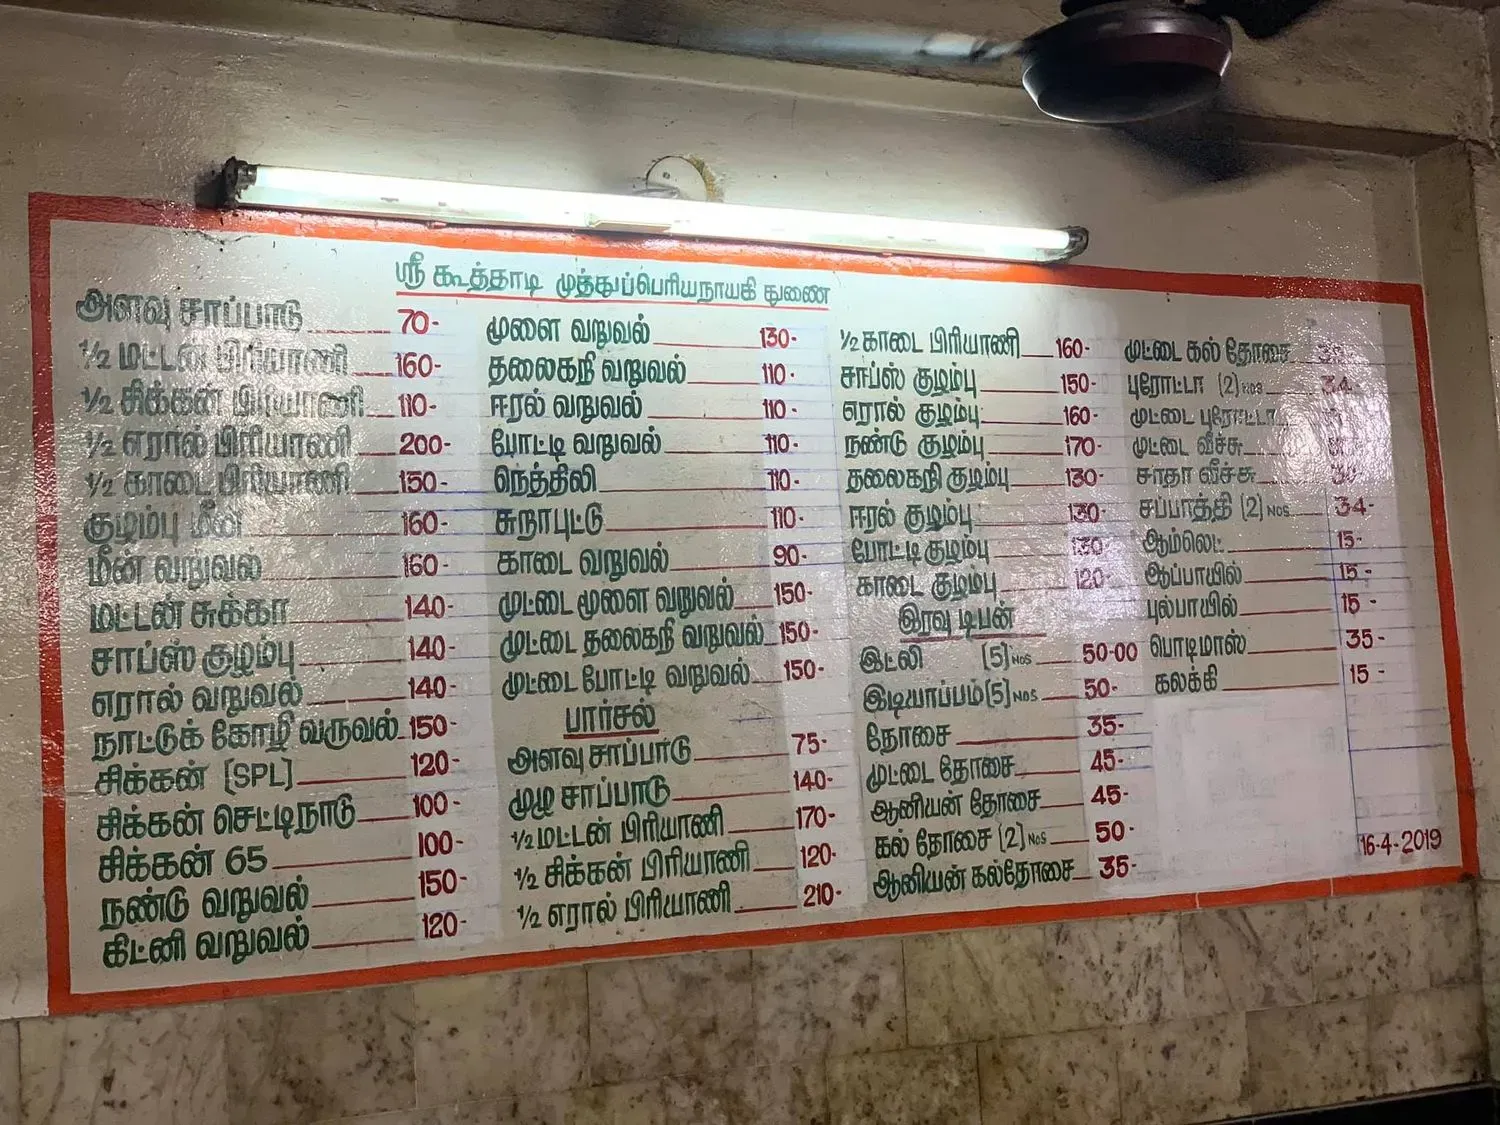 ஸ்ரீ கூத்தாடி முத்துப்பெரியநாயகி துணை
அளவு சாப்பாடு 70-
½ மட்டன் பிரியாணி 160-
½ சிக்கன் பிரியாணி 110-
½ எரால் பிரியாணி 200-
½ காடை பிரியாணி 150-
குழம்பு மீன் 160-
மீன் வறுவல் 160-
மட்டன் சுக்கா 140-
சாப்ஸ் குழம்பு 140-
எரால் வறுவல் 140-
நாட்டுக் கோழி வருவல் 150-
சிக்கன் [SPL] 120-
சிக்கன் செட்டிநாடு 100-
சிக்கன் 65 100-
நண்டு வறுவல் 150-
கிட்னி வறுவல் 120-
முளை வறுவல் 130-
தலைகறி வறுவல் 110-
ஈரல் வறுவல் 110-
போட்டி வறுவல் 110-
நெத்திலி 110-
சுறாபுட்டு 110-
காடை வறுவல் 90-
முட்டை மூளை வறுவல் 150-
முட்டை தலைகறி வறுவல் 150-
முட்டை போட்டி வறுவல் 150-
பார்சல்
அளவு சாப்பாடு 75-
முழு சாப்பாடு 140-
½ மட்டன் பிரியாணி 170-
½ சிக்கன் பிரியாணி 120-
½ எரால் பிரியாணி 210-
½ காடை பிரியாணி 160-
சாப்ஸ் குழம்பு 150-
எரால் குழம்பு 160-
நண்டு குழம்பு 170-
தலைகறி குழம்பு 130-
ஈரல் குழம்பு 130-
போட்டி குழம்பு 130-
காடை குழம்பு 120-
இரவு டிபன்
இட்லி [5] Nos 50-00
இடியாப்பம் [5] Nos 50-
தோசை 35-
முட்டை தோசை 45-
ஆனியன் தோசை 45-
கல் தோசை [2] Nos 50-
ஆனியன் கல்தோசை 35-
முட்டை கல் தோசை
புரோட்டா [2] Nos 34-
முட்டை புரோட்டா
முட்டை வீச்சு
சாதா வீச்சு
சப்பாத்தி [2] Nos 34-
ஆம்லெட் 15-
ஆப்பாயில் 15-
புல்பாயில் 15-
பொடிமாஸ் 35-
கலக்கி 15-
16-4-2019